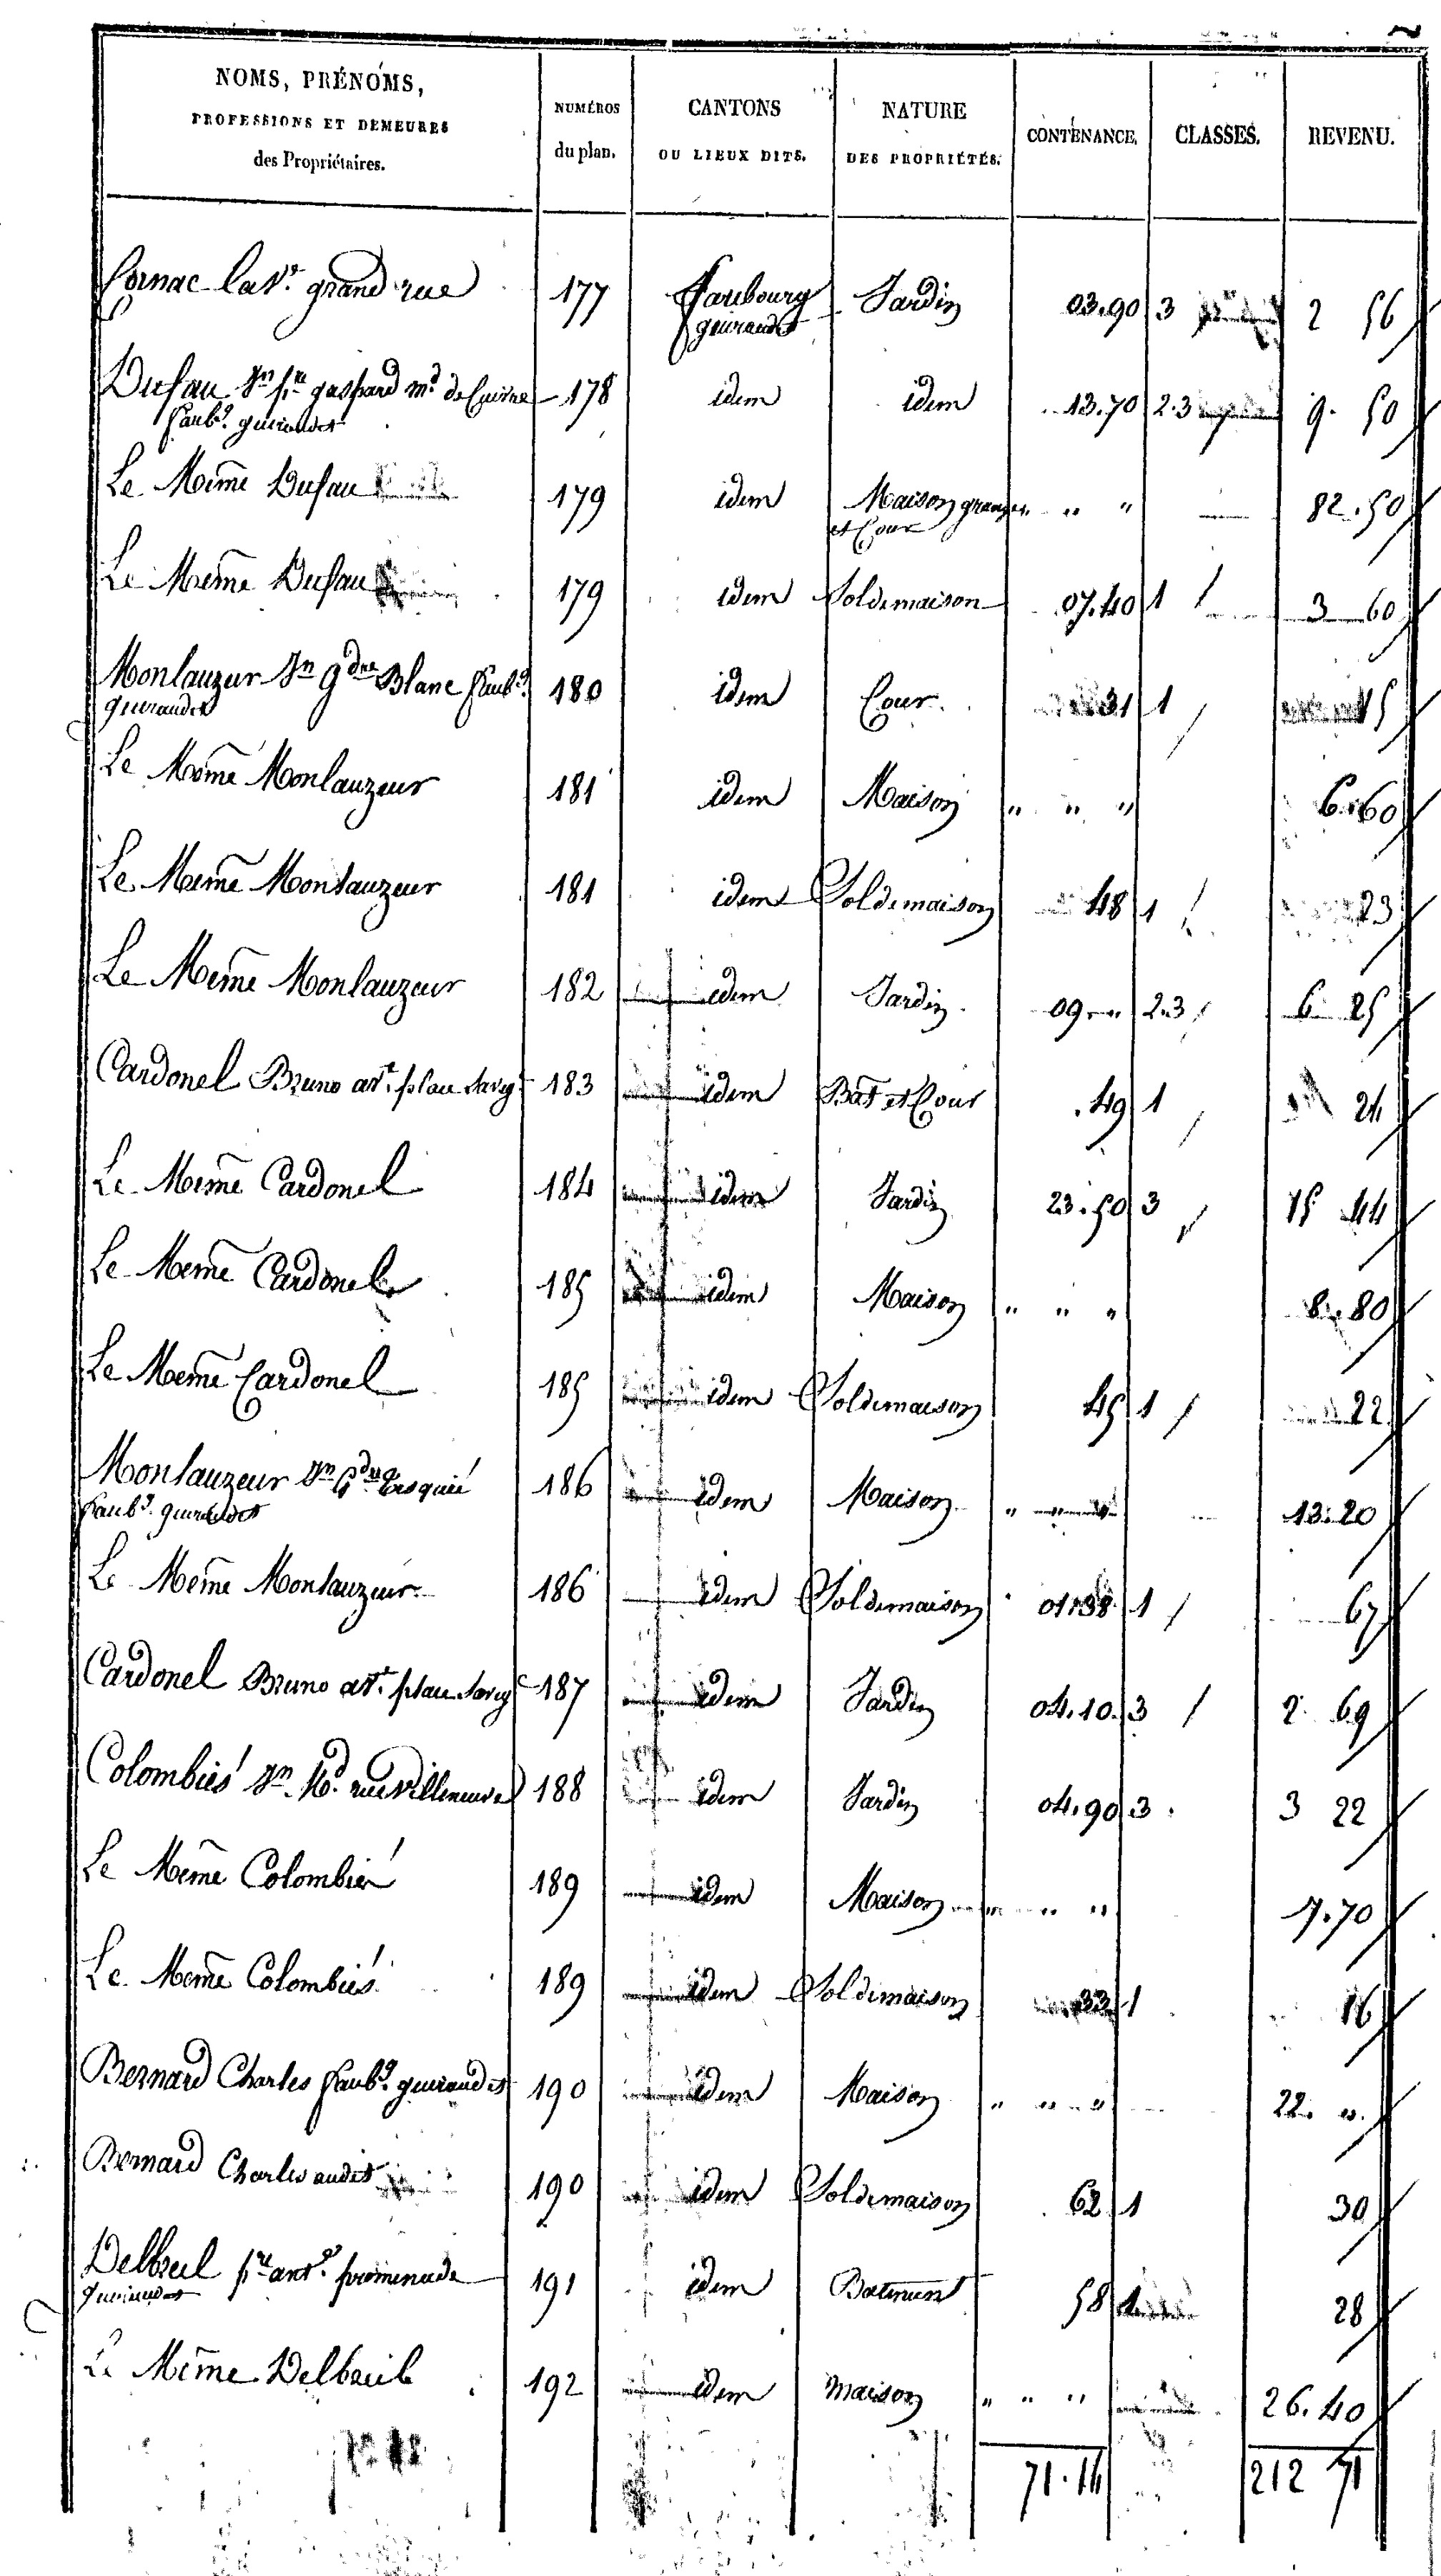 NOMS, PRÉNOMS,
PROFESSIONS ET DEMEURES
des Propriétaires.
NUMÉROS
du plan.
CANTONS
OU LIEUX DITS.
NATURE
DES PROPRIÉTÉS.
CONTENANCE.
CLASSES.
REVENU.
Cornac la Ve. grand rue 177 Faubourg Jardin 03.90 3 2 56
guiraudet
Dufau Jn pre gaspard md. de Cuivre 178 idem idem 13.70 2.3 9. 50
faubg. guiraudet
Le Meme Dufau 179 idem Maison granges " " 82.50
et Cour
Le Meme Dufau 179 idem Sol de maison 07.40 1 3 60
Monlauzeur Jn gdre Blanc faubg. 180 idem Cour 31 1 15
guiraudet
Le Meme Monlauzeur 181 idem Maison " " " 6.60
Le Meme Monlauzeur 181 idem Sol de maison 48 1 23
Le Meme Monlauzeur 182 idem Jardin 09 " 2.3 6 25
Cardonel Bruno art. 183 idem Bat et Cour .49 1 24
Le Meme Cardonel 184 idem Jardin 23.50 3 15 44
Le Meme Cardonel 185 idem Maison " " " 8.80
Le Meme Cardonel 185 idem Sol de maison 45 1 22
Monlauzeur Jn Gdre 186 idem Maison " " 13.20
faubg. guiraudet
Le Meme Monlauzeur 186 idem Sol de maison 01.38 1 67
Cardonel Bruno art. 187 idem Jardin 04.10 3 2 69
Colombiés Jn Md. rue villeneuve 188 idem Jardin 04.90 3 3 22
Le Meme Colombiés 189 idem Maison " " 7.70
Le Meme Colombiés 189 idem Sol de maison 33 1 16
Bernard Charles faubg. guiraudet 190 idem Maison " " " 22. "
Bernard Charles audit 190 idem Sol de maison 62 1 30
Delbreil pre ant. promenade 191 idem Batiment 58 1 28
guiraudet
Le Meme Delbreil 192 idem maison " " " 26.40
71.14 212 71